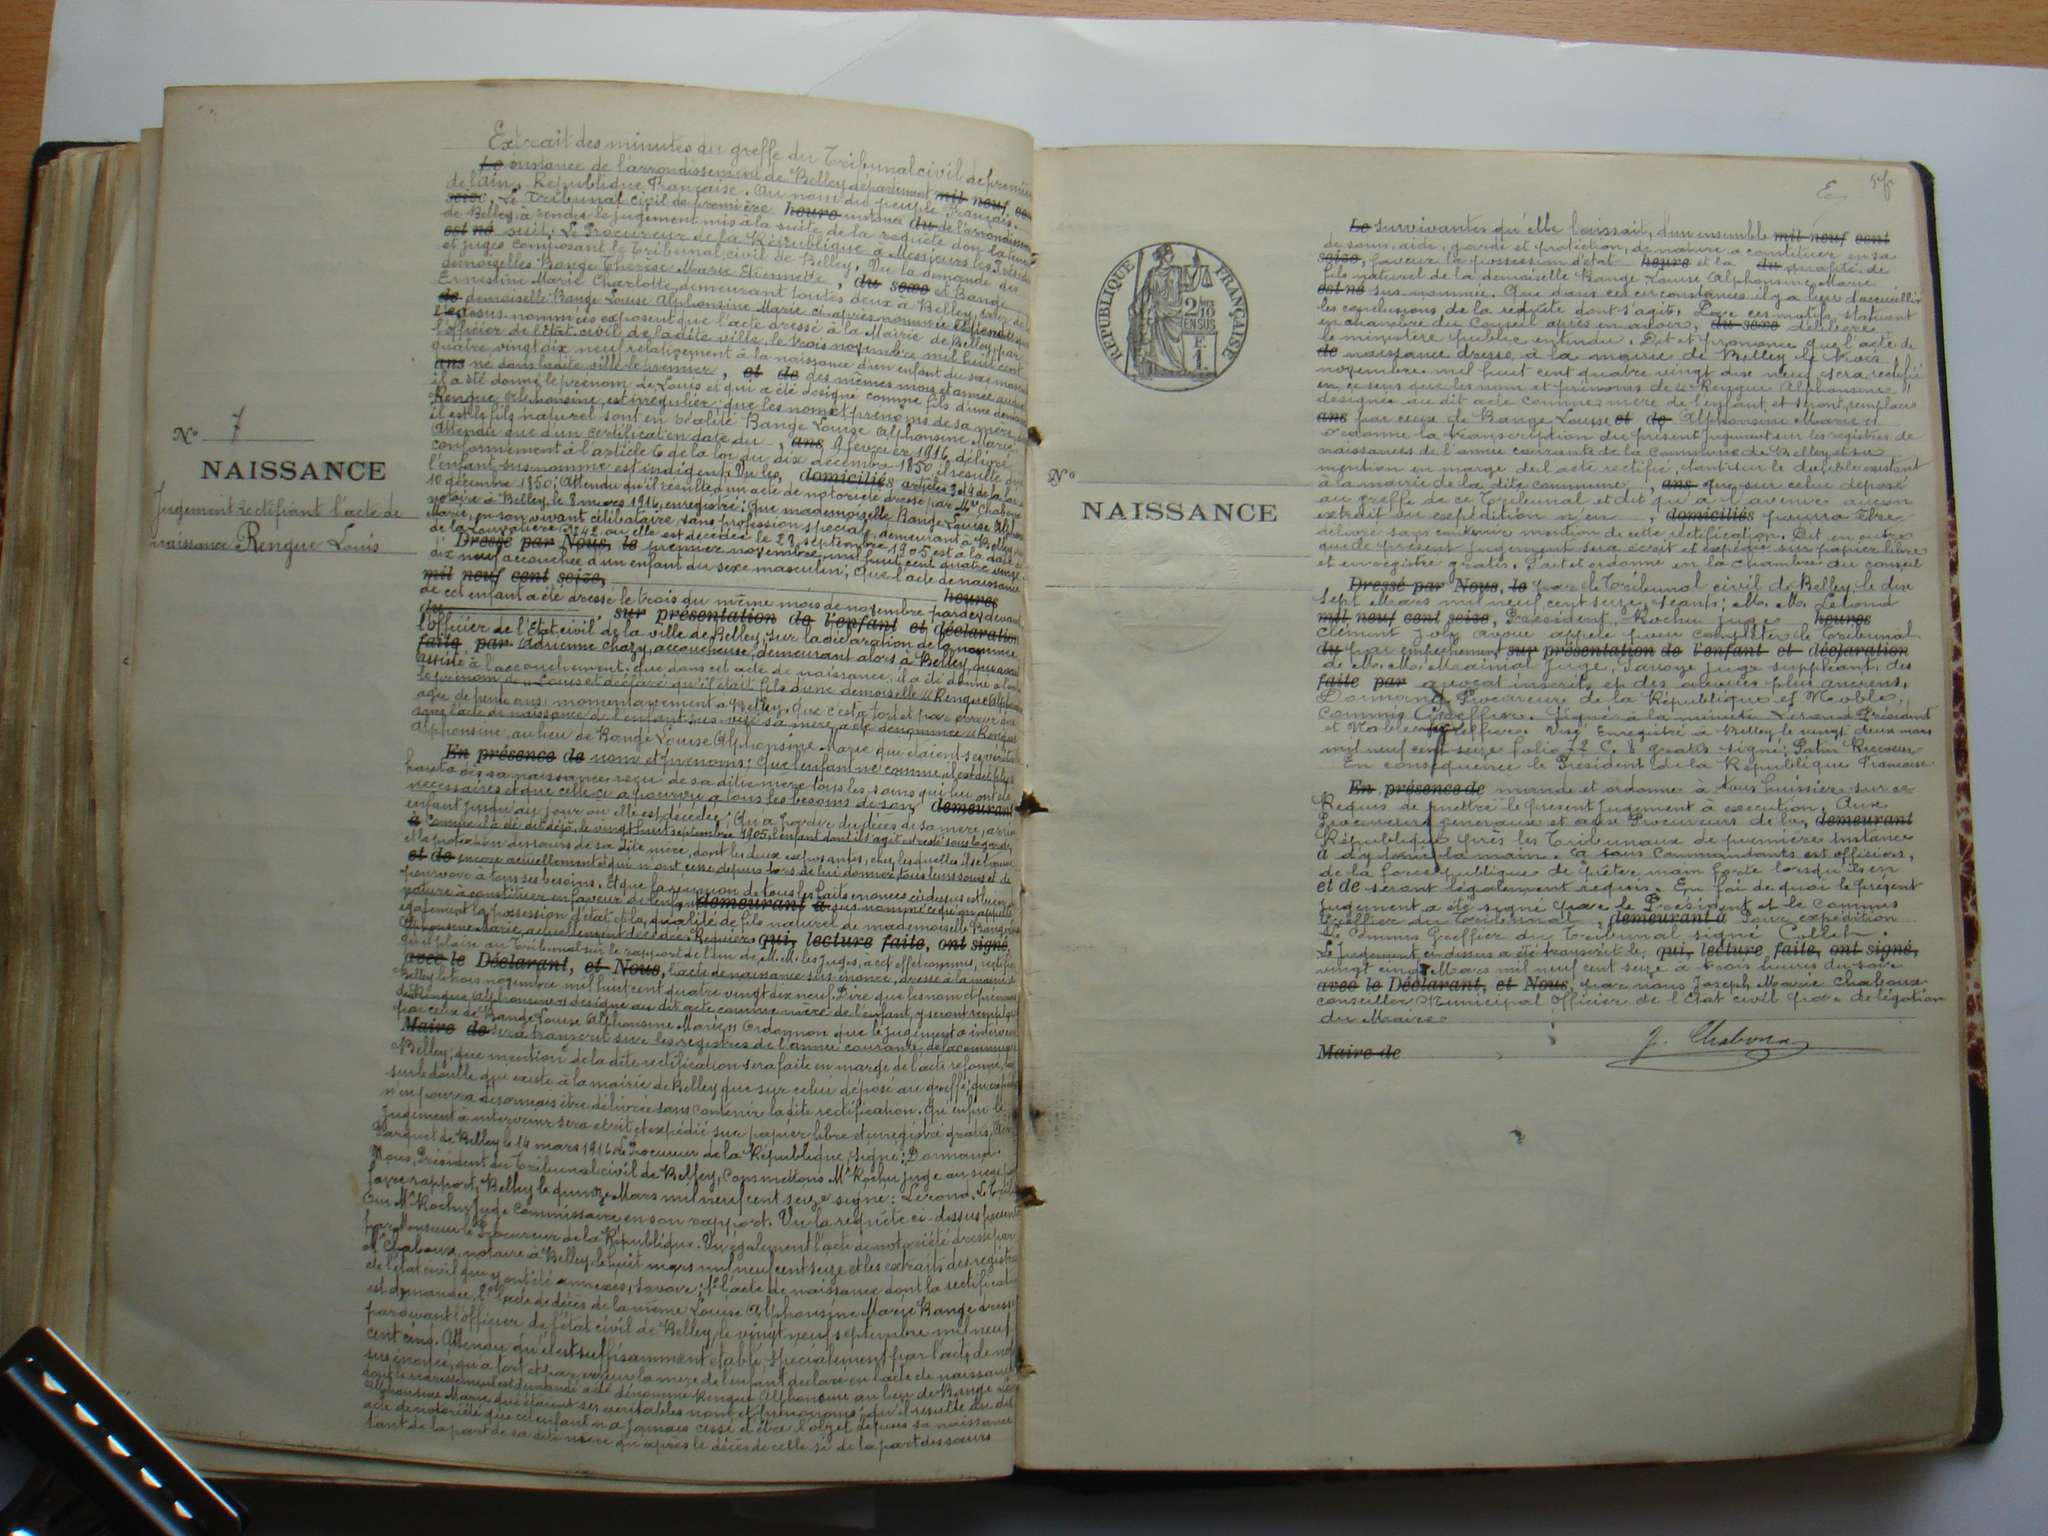 Extrait des minutes du greffe du Tribunal civil de première
Le instance de l'arrondissement de Belley département mil neuf cent
de l'Ain. République Française. Au nom du peuple Français.
seize, Le Tribunal civil de première heure instance du de l'arrondissement
de Belley, à rendu le jugement mis à la suite de la requête dont la teneur
est né suit: Le Procureur de la République à Messieurs les Président
et Juges composant le Tribunal civil de Belley. Vu la demande des
demoiselles Bange Thérèse Marie Etiennette, du sexe et Bange
Ernestine Marie Charlotte demeurant toutes deux à Belley,
de demoiselle Bange Louise Alphonsine Marie ci-après nommée
ci-dessus nommées exposent que l'acte dressé à la Mairie de Belley par
l'officier de l'état civil de la dite ville, le trois novembre mil huit cent
quatre vingt dix neuf relativement à la naissance d'un enfant du sexe masculin
ans né dans la dite ville le premier, et de des mêmes mois et année auquel
il a été donné le prénom de Louis et qui a été désigné comme fils d'une demoiselle
Rengue Alphonsine, est irrégulier; que les nom et prénoms de sa mère, dont
il est le fils naturel sont en réalité Bange Louise Alphonsine Marie
Attendu que d'un certificat en date du, ans 9 février 1916, délivré
conformément à l'article 6 de la loi du dix décembre 1850 il résulte que
l'enfant susnommé est indigent. Vu les, domiciliés articles 3 et 4 de la loi
10 décembre 1850; Attendu qu'il résulte d'un acte de notoriété dressé par Me Chaboux
notaire à Belley, le 8 mars 1916, enregistré: Que mademoiselle Bange Louise Alphonsine
Marie, en son vivant célibataire sans profession spéciale, demeurant à Belley rue
de la Louvatière No 42, où elle est décédée le 28 septembre 1905 est à la date du
Dressé par Nous, le premier novembre mil huit cent quatre vingt
dix neuf accouchée d'un enfant du sexe masculin; Que l'acte de naissance
mil neuf cent seize, heures
de cet enfant a été dressé le trois du même mois de novembre par devant
du sur présentation de l'enfant et déclaration
l'officier de l'Etat civil de la ville de Belley, sur la déclaration de la nommée
faite par Adrienne Chazy, accoucheuse, demeurant alors à Belley, qui avait
assisté à l'accouchement: que dans cet acte de naissance, il a été donné à l'enfant
le prénom de "Louis et déclaré qu'il était fils d'une demoiselle "Rengue Alphonsine
agée de trente ans, momentanément à Belley. Que c'est à tort et par erreur que
dans l'acte de naissance de l'enfant sus visé sa mère a été dénommée "Rengue
Alphonsine, au lieu de Bange Louise Alphonsine Marie qui étaient ses véritables
En présence de nom et prénoms; Que l'enfant né comme il est dit plus
haut a dès sa naissance, reçu de sa dite mère tous les soins qui lui ont été
nécessaires et que celle-ci a pourvu à tous les besoins de son demeurant
enfant jusqu'au jour où elle est décédée; Qu'à partir du décès de sa mère, arrivé
à comme il a été dit déjà, le vingt huit septembre 1905, l'enfant dont il s'agit est resté sous la garde
et la protection des sœurs de sa dite mère, dont les deux exposantes, chez lesquelles il se trouve
et de encore actuellement et qui n'ont cessé depuis lors de lui donner tous leurs soins et de
pourvoir à tous ses besoins. Et que la réunion de tous les faits énoncés ci-dessus est bien de
nature à constituer en faveur de l'enfant demeurant à sus nommé ce qu'on appelle
également la possession d'état et la qualité de fils naturel de mademoiselle Bange Louise
Alphonsine Marie, actuellement décédée. Requiers qui, lecture faite, ont signé
qu'il plaise au Tribunal sur le rapport de l'un de M.M. les Juges, à cet effet commis, rectifier
avec le Déclarant, et Nous, l'acte de naissance sus énoncé, dressé à la mairie de
Belley le trois novembre mil huit cent quatre vingt dix neuf. Dire que les nom et prénoms
de "Rengue Alphonsine" désignée au dit acte comme mère de l'enfant, y seront remplacés
par ceux de "Bange Louise Alphonsine Marie,, Ordonner que le jugement à intervenir
Maire de sera transcrit sur les registres de l'année courante de la commune de
Belley; que mention de la dite rectification sera faite en marge de l'acte réformé, tant
sur le double qui existe à la mairie de Belley que sur celui déposé au greffe; qu'expédition
n'en pourra désormais être délivrée sans contenir la dite rectification. Qu'enfin le
Jugement à intervenir sera écrit et expédié sur papier libre et enregistré gratis.
Parquet de Belley le 14 mars 1916. Le Procureur de la République, signé: Dormand.
Nous, Président du Tribunal civil de Belley, Commettons Mr Rochu juge au siège pour
faire rapport, Belley le quinze Mars mil neuf cent seize signé: Lerond. Le Tribunal
Oui Mr Rochu Juge Commissaire en son rapport. Vu la requête ci-dessus présentée
par Monsieur le Procureur de la République. Vu également l'acte de notoriété dressé par
Me Chaboux, notaire à Belley, le huit mars mil neuf cent seize et les extraits des registres
de l'état civil qui y ont été annexés, savoir: 1o l'acte de naissance dont la rectification
est demandée, 2o l'acte de décès de la même Louise Alphonsine Marie Bange dressé
par devant l'officier de l'état civil de Belley, le vingt neuf septembre mil neuf
cent cinq. Attendu qu'il est suffisamment établi, spécialement par l'acte de notoriété
sus énoncé, qu'à tort et par erreur la mère de l'enfant déclaré en l'acte de naissance
dont le redressement est demandé a été dénommée Rengue Alphonsine au lieu de Bange Louise
Alphonsine Marie qui étaient ses véritables nom et prénoms; qu'il résulte du dit
acte de notoriété que cet enfant n'a jamais cessé d'être l'objet depuis sa naissance
tant de la part de sa dite mère qu'après le décès de celle-ci de la part des sœurs
No 7
NAISSANCE
Jugement rectifiant l'acte de
naissance Rengue Louis
E
RÉPUBLIQUE FRANÇAISE
2/10
EN SUS
F.
1.
No
NAISSANCE
Le survivantes qu'elle laissait, d'un ensemble mil neuf cent
de soins, aide, garde et protection, de nature à constituer en sa
seize, faveur la possession d'état heure et la du qualité de
fils naturel de la demoiselle Bange Louise Alphonsine Marie
est né sus nommée. Que dans ces circonstances il y a lieu d'accueillir
les conclusions de la requête dont s'agit. Par ces motifs, statuant
en chambre du Conseil après en avoir, du sexe délibéré
le ministère public entendu. Dit et prononce que l'acte de
de naissance dressé à la mairie de Belley le trois
novembre mil huit cent quatre vingt dix neuf sera rectifié
en ce sens que les nom et prénoms de "Rengue Alphonsine"
désignée au dit acte comme mère de l'enfant et seront remplacés
ans par ceux de Bange Louise et de Alphonsine Marie et
ordonne la transcription du présent jugement sur les registres de
naissances de l'année courante de la Commune de Belley et sa
mention en marge de l'acte rectifié, tant sur le double existant
à la mairie de la dite commune, ans que sur celui déposé
au greffe de ce Tribunal et dit qu'à l'avenir aucun
extrait ou expédition n'en, domiciliés pourra être
délivré sans contenir mention de cette rectification. Dit en outre
que le présent jugement sera écrit et expédié sur papier libre
et enregistré gratis. Fait et ordonné en la chambre du conseil
Dressé par Nous, le par le Tribunal civil de Belley, le dix
sept Mars mil neuf cent seize, séants: M. M. Lerond
mil neuf cent seize, Président, Rochu juge heures
Clément Joly avoué appelé pour compléter le Tribunal
du par empêchement sur présentation de l'enfant et déclaration
de M. M. Juge, juge suppléant, des
faite par avocat inscrit, et des avoués plus anciens,
Dormand Procureur de la République et Noble,
commis Greffier. Signé à la minute Lerond Président
et Noble Greffier. Visé Enregistré à Belley le vingt deux mars
mil neuf cent seize folio 72 C. 8 gratis signé: Patin Receveur
En conséquence le Président de la République Française
En présence de mande et ordonne à tous huissiers sur ce
Requis de mettre le présent jugement à exécution. Aux
Procureurs généraux et aux Procureurs de la, demeurant
République près les Tribunaux de première instance
à d'y tenir la main. à tous Commandants et officiers,
de la force publique de prêter main forte lorsqu'ils en
et de seront légalement requis. En foi de quoi le présent
jugement a été signé par le Président et le Commis
Greffier du Tribunal, demeurant à Pour expédition
Le Commis Greffier du Tribunal signé Collet.
Le Jugement ci-dessus a été transcrit le, qui, lecture faite, ont signé,
vingt cinq Mars mil neuf cent seize à trois heures du soir
avec le Déclarant, et Nous, par nous Joseph Marie Chaboux
conseiller Municipal Officier de l'Etat civil par délégation
du Maire.
Maire de
J. Chaboux